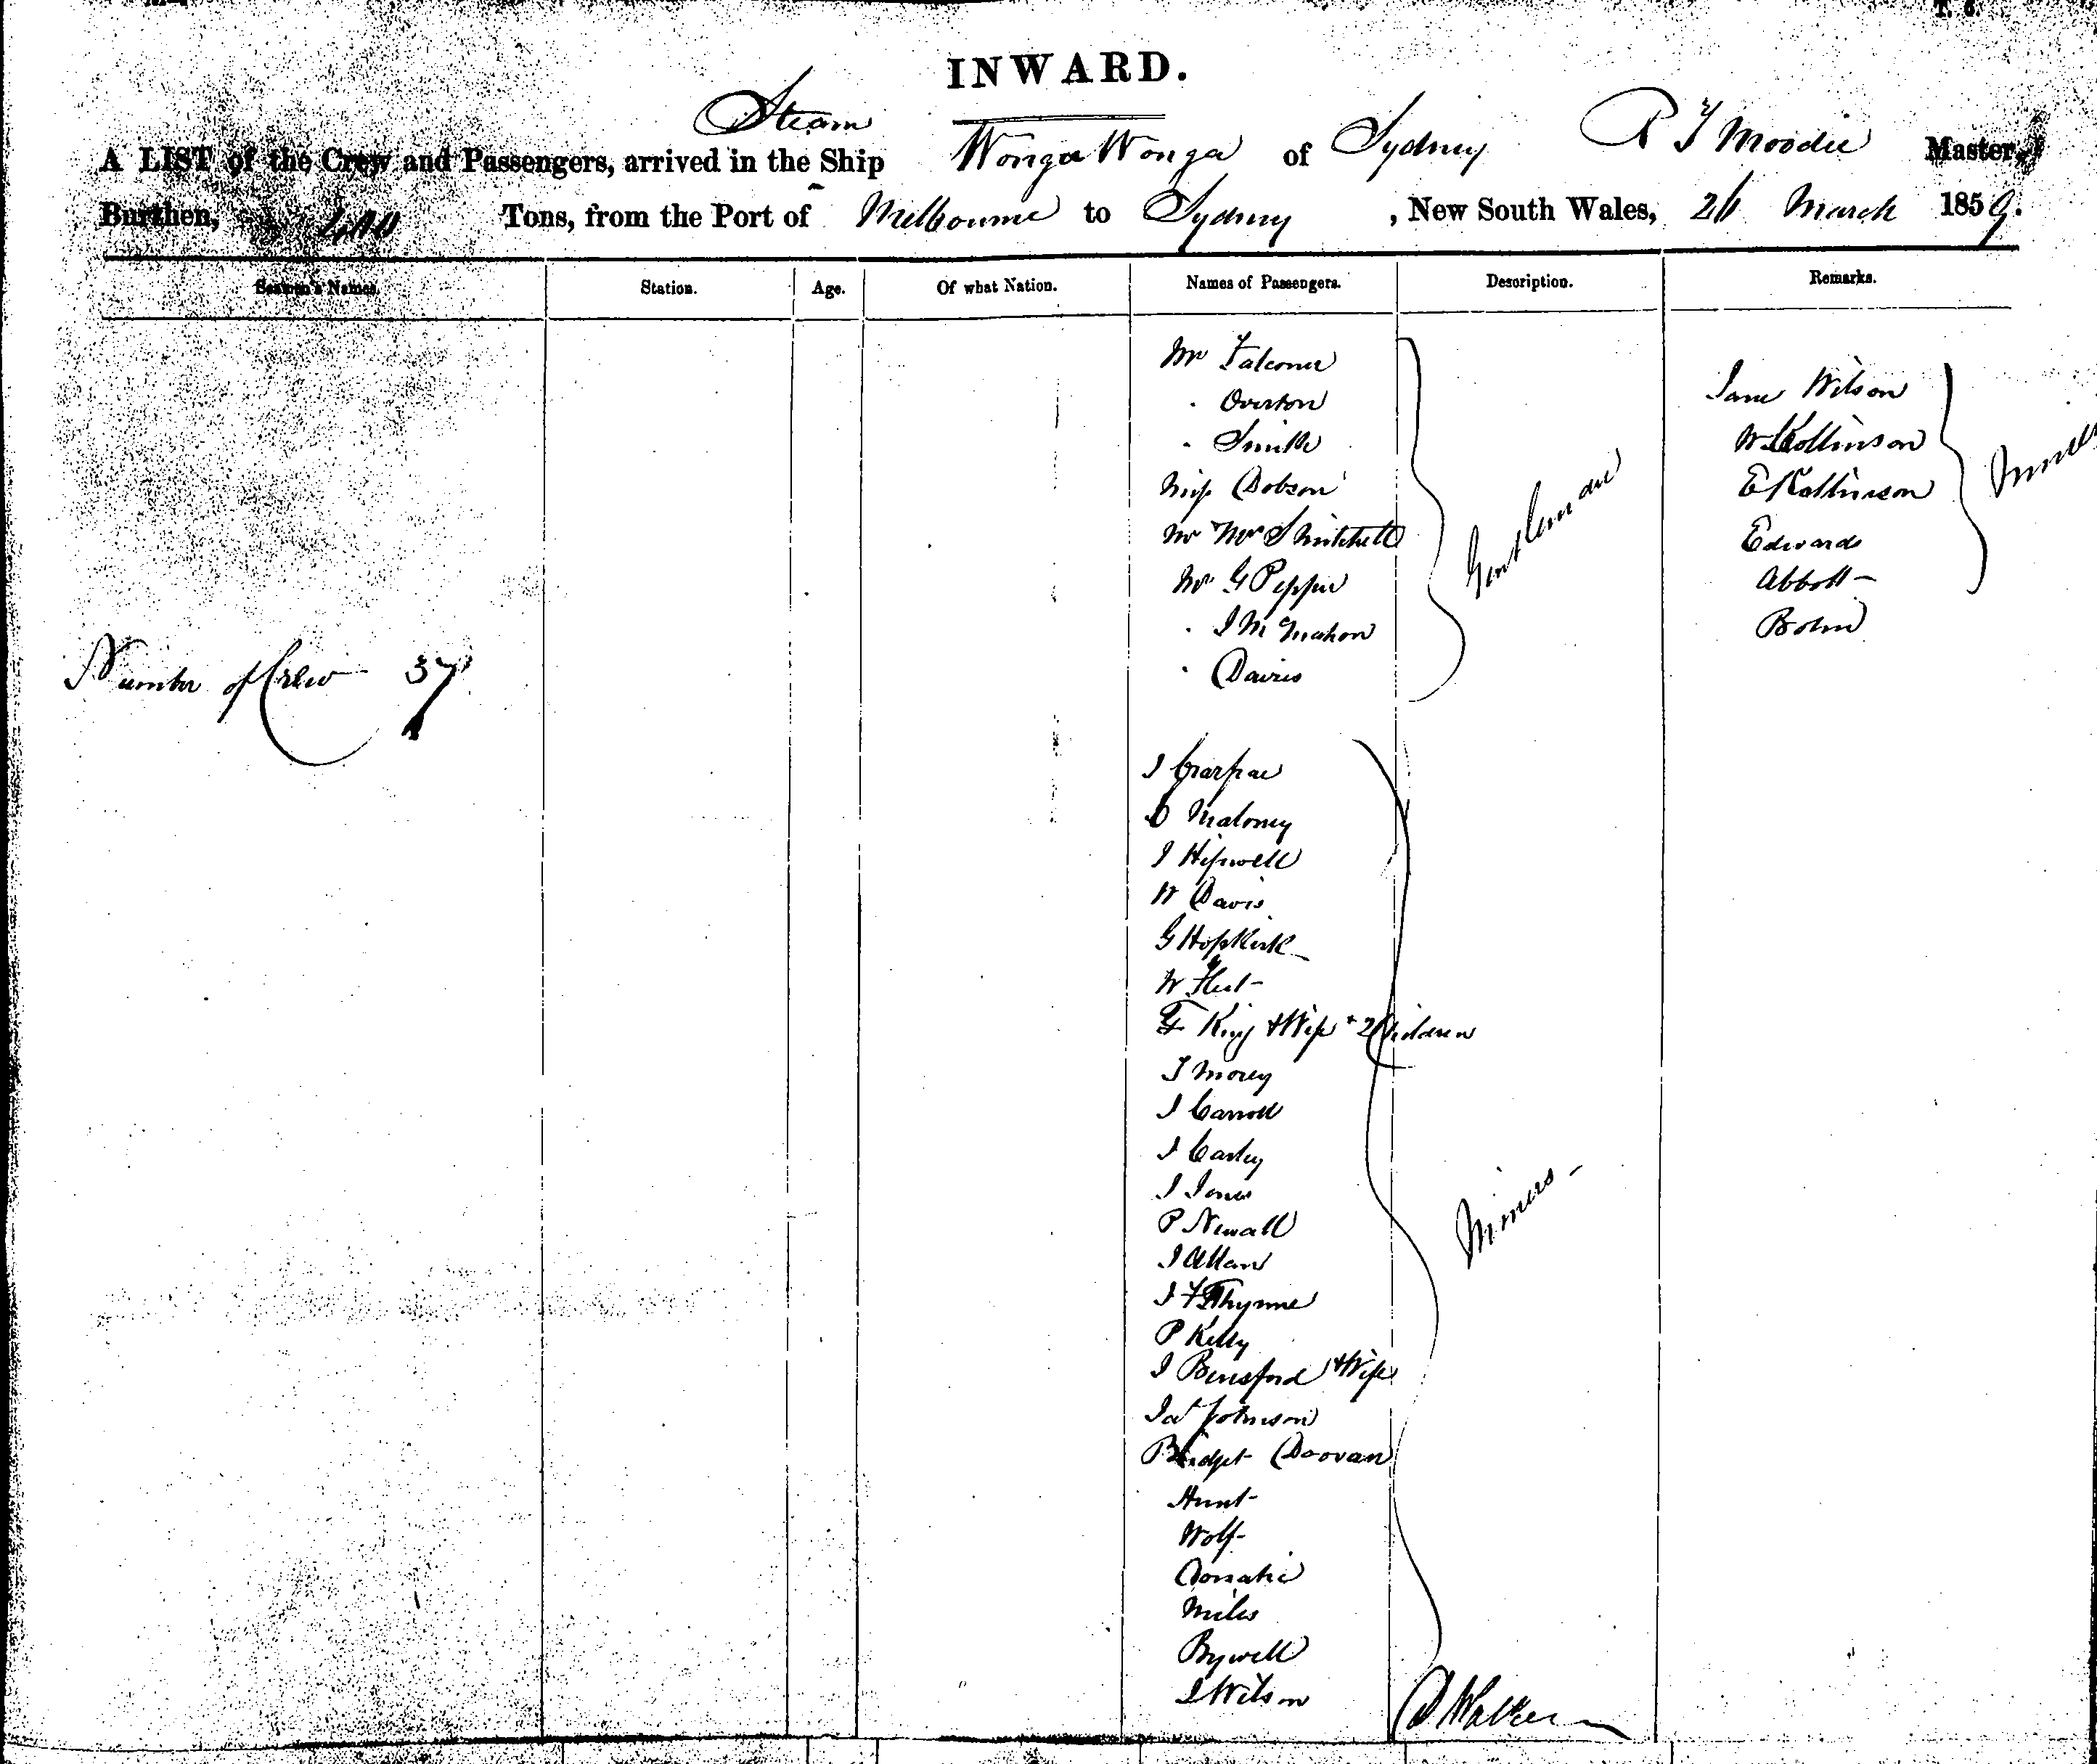 INWARD.
Steam
A LIST of the Crew and Passengers, arrived in the Ship Wonga Wonga of Sydney R T Moodie Master,
Burthen, 400 Tons, from the Port of Melbourne to Sydney, New South Wales, 26 March 1859.
Seamen's Names. Station. Age. Of what Nation. Names of Passengers. Description. Remarks.
Mr Falconer
" Overton
" Smith
Miss Dobson
Mr Mrs S Mitchell
Mr G Pepper
" J McMahon
" Davies
Gentleman
Jane Wilson
W Rollinson
E Rollinson
Edwards
Abbott
Bohn
Number of Crew 37
J Maloney
J Hipwell
W Davis
G Hopkirk
W Fleet
F King & Wife & 2 Children
T Morey
J Carroll
J Carley
J Jones
P Newall
J Allan
J F Thynne
P Kelly
J Beresford & Wife
Jas Johnson
Bridget Donovan
Hunt
Wolf
Miles
Bywell
J Wilson
Miners
Walker